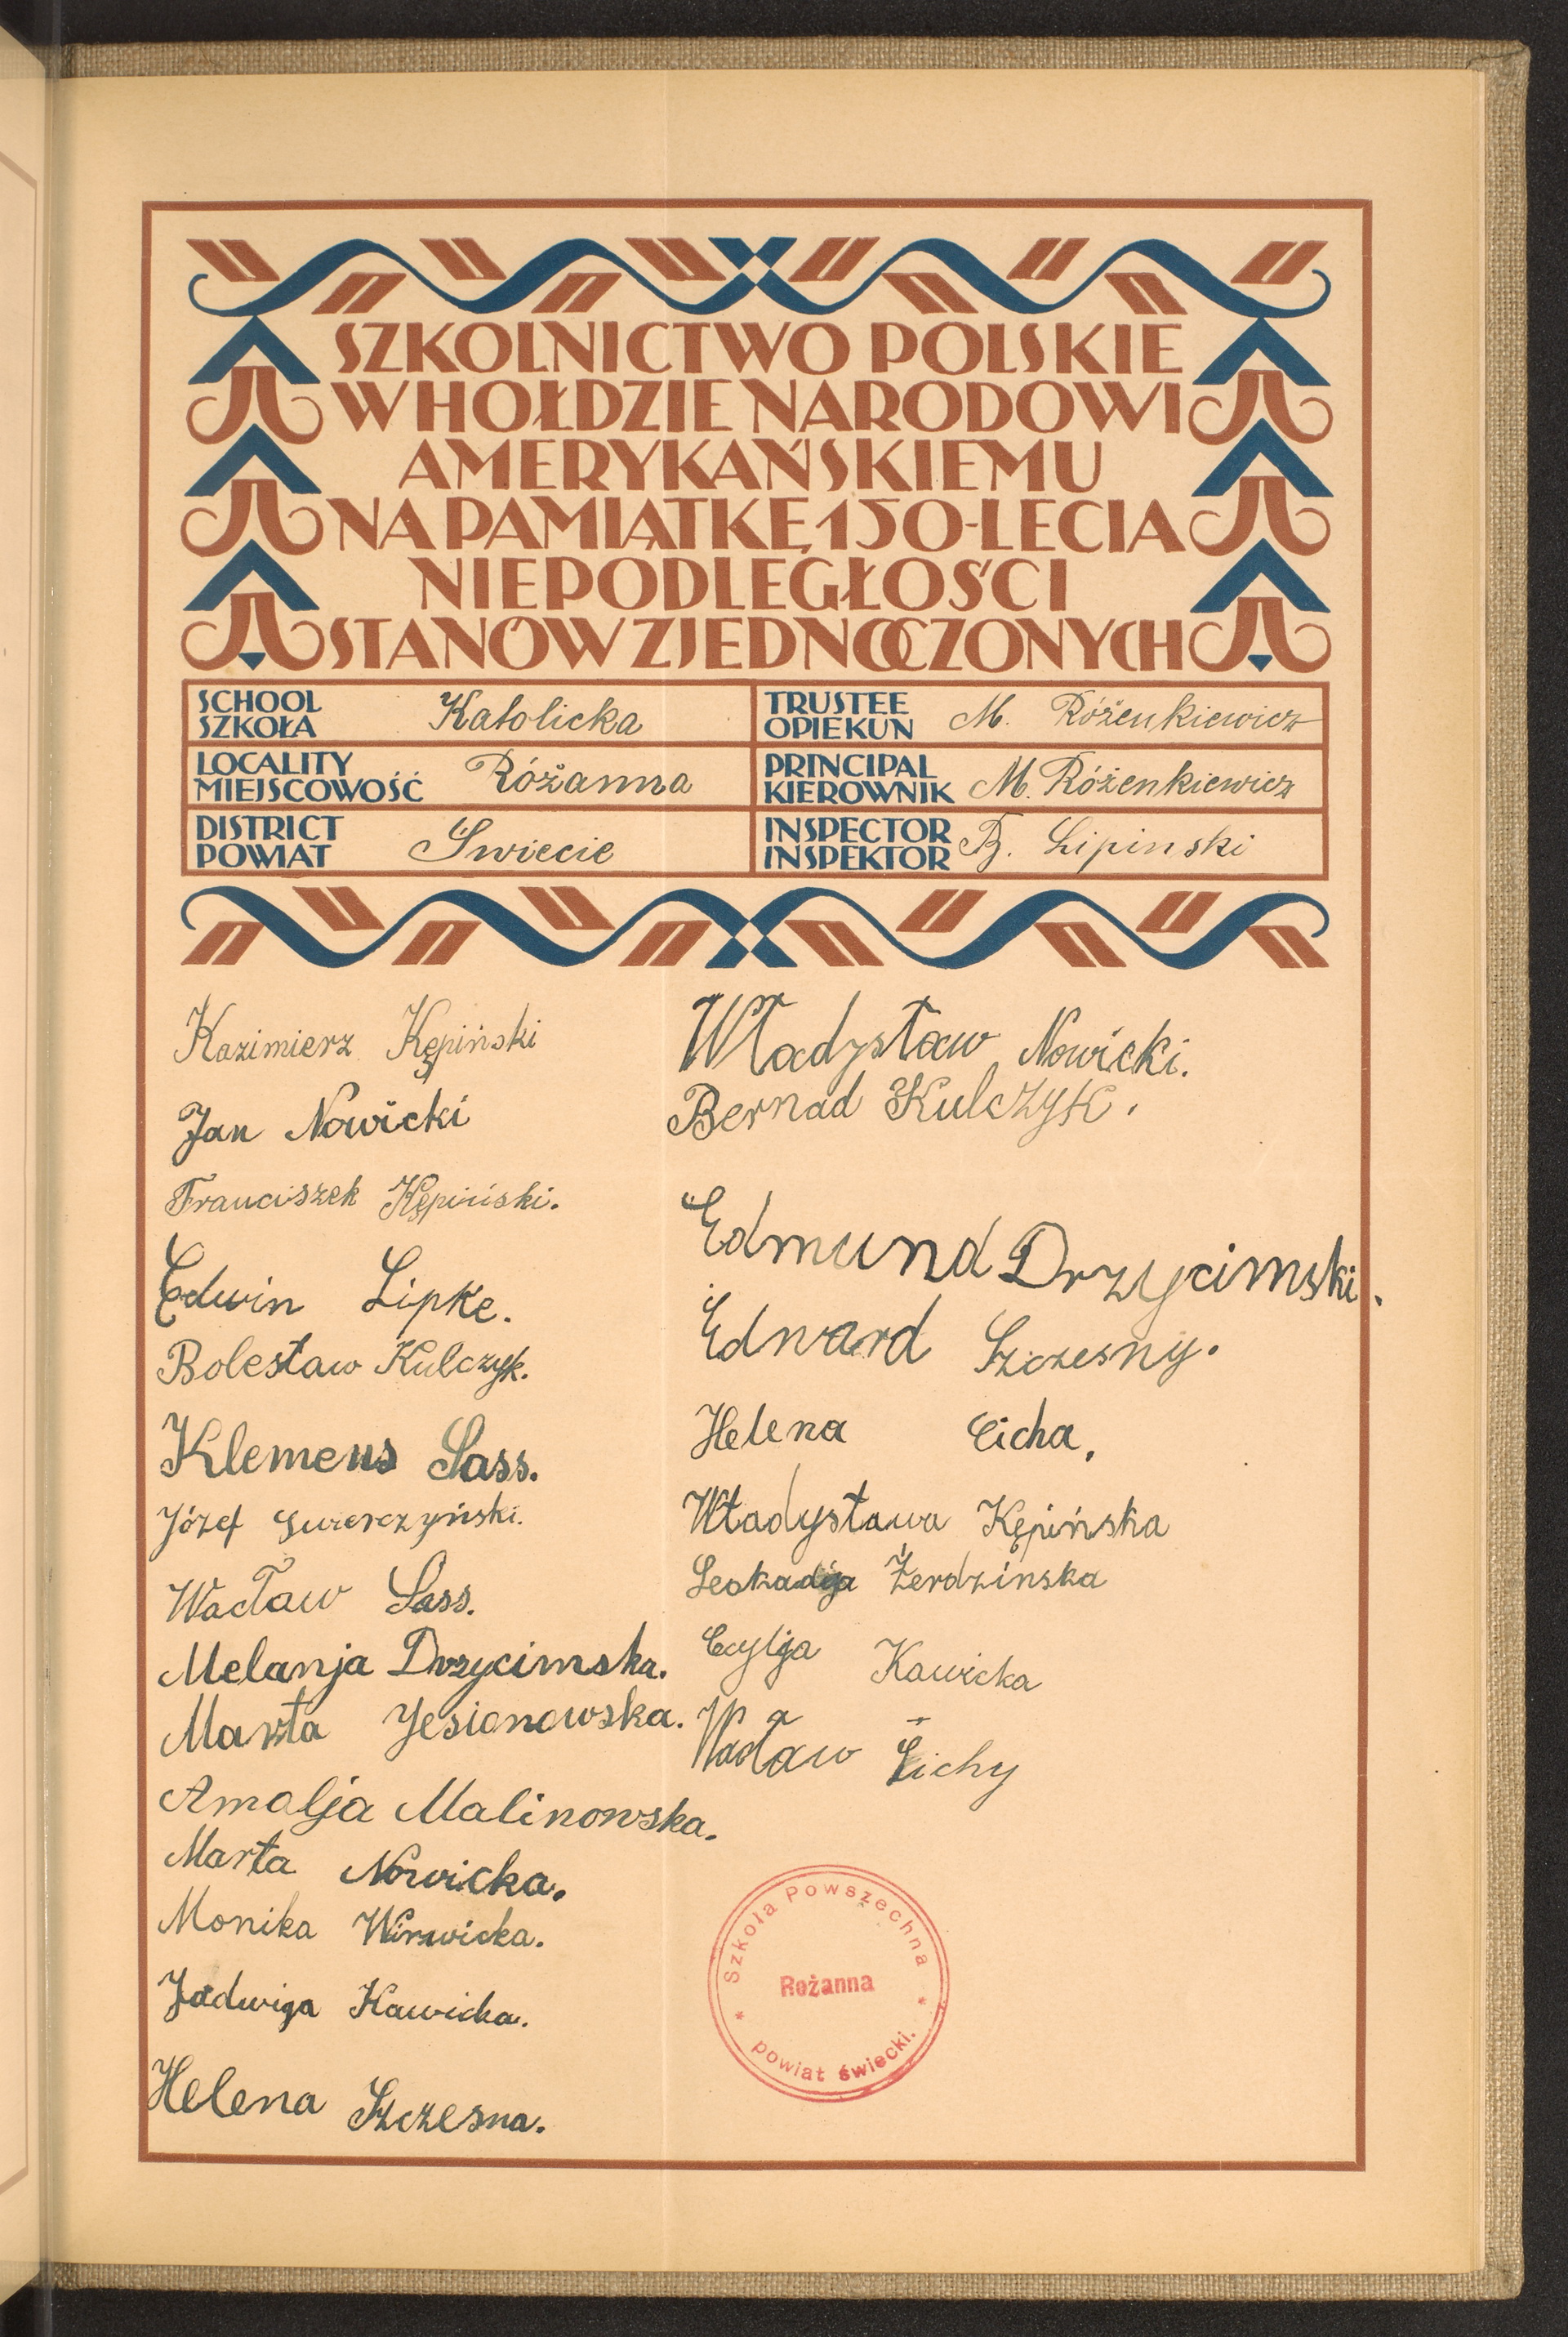 SZKOLNICTWO POLSKIE
W HOŁDZIE NARODOWI
AMERYKAŃSKIEMU
NA PAMIĄTKĘ 150-LECIA
NIEPODLEGŁOŚCI
STANÓW ZJEDNOCZONYCH
SCHOOL
SZKOŁA
Katolicka
TRUSTEE
OPIEKUN
M. Różenkiewicz
LOCALITY
MIEJSCOWOŚĆ
Różanna
PRINCIPAL
KIEROWNIK
M. Różenkiewicz
DISTRICT
POWIAT
Świecie
INSPECTOR
INSPEKTOR
B. Lipinski
Kazimierz Kępiński
Jan Nowicki
Franciszek Kępiński.
Edwin Lipke.
Bolesław Kulczyk.
Klemens Sass.
Józef Swierczyński.
Wacław Sass.
Melanja Drzycimska.
Marta Jesionowska.
Amalja Malinowska.
Marta Nowicka.
Monika Wirwicka.
Jadwiga Kawicka.
Helena Szczesna.
Władysław Nowicki.
Bernad Kulczyk.
Edmund Drzycimski.
Edward Szczesny.
Helena Cicha.
Władysława Kępińska
Leokadja Żerdzinska
Cecylja Kawicka
Wacław Cichy
Szkoła Powszechna
Rożanna
powiat świecki.